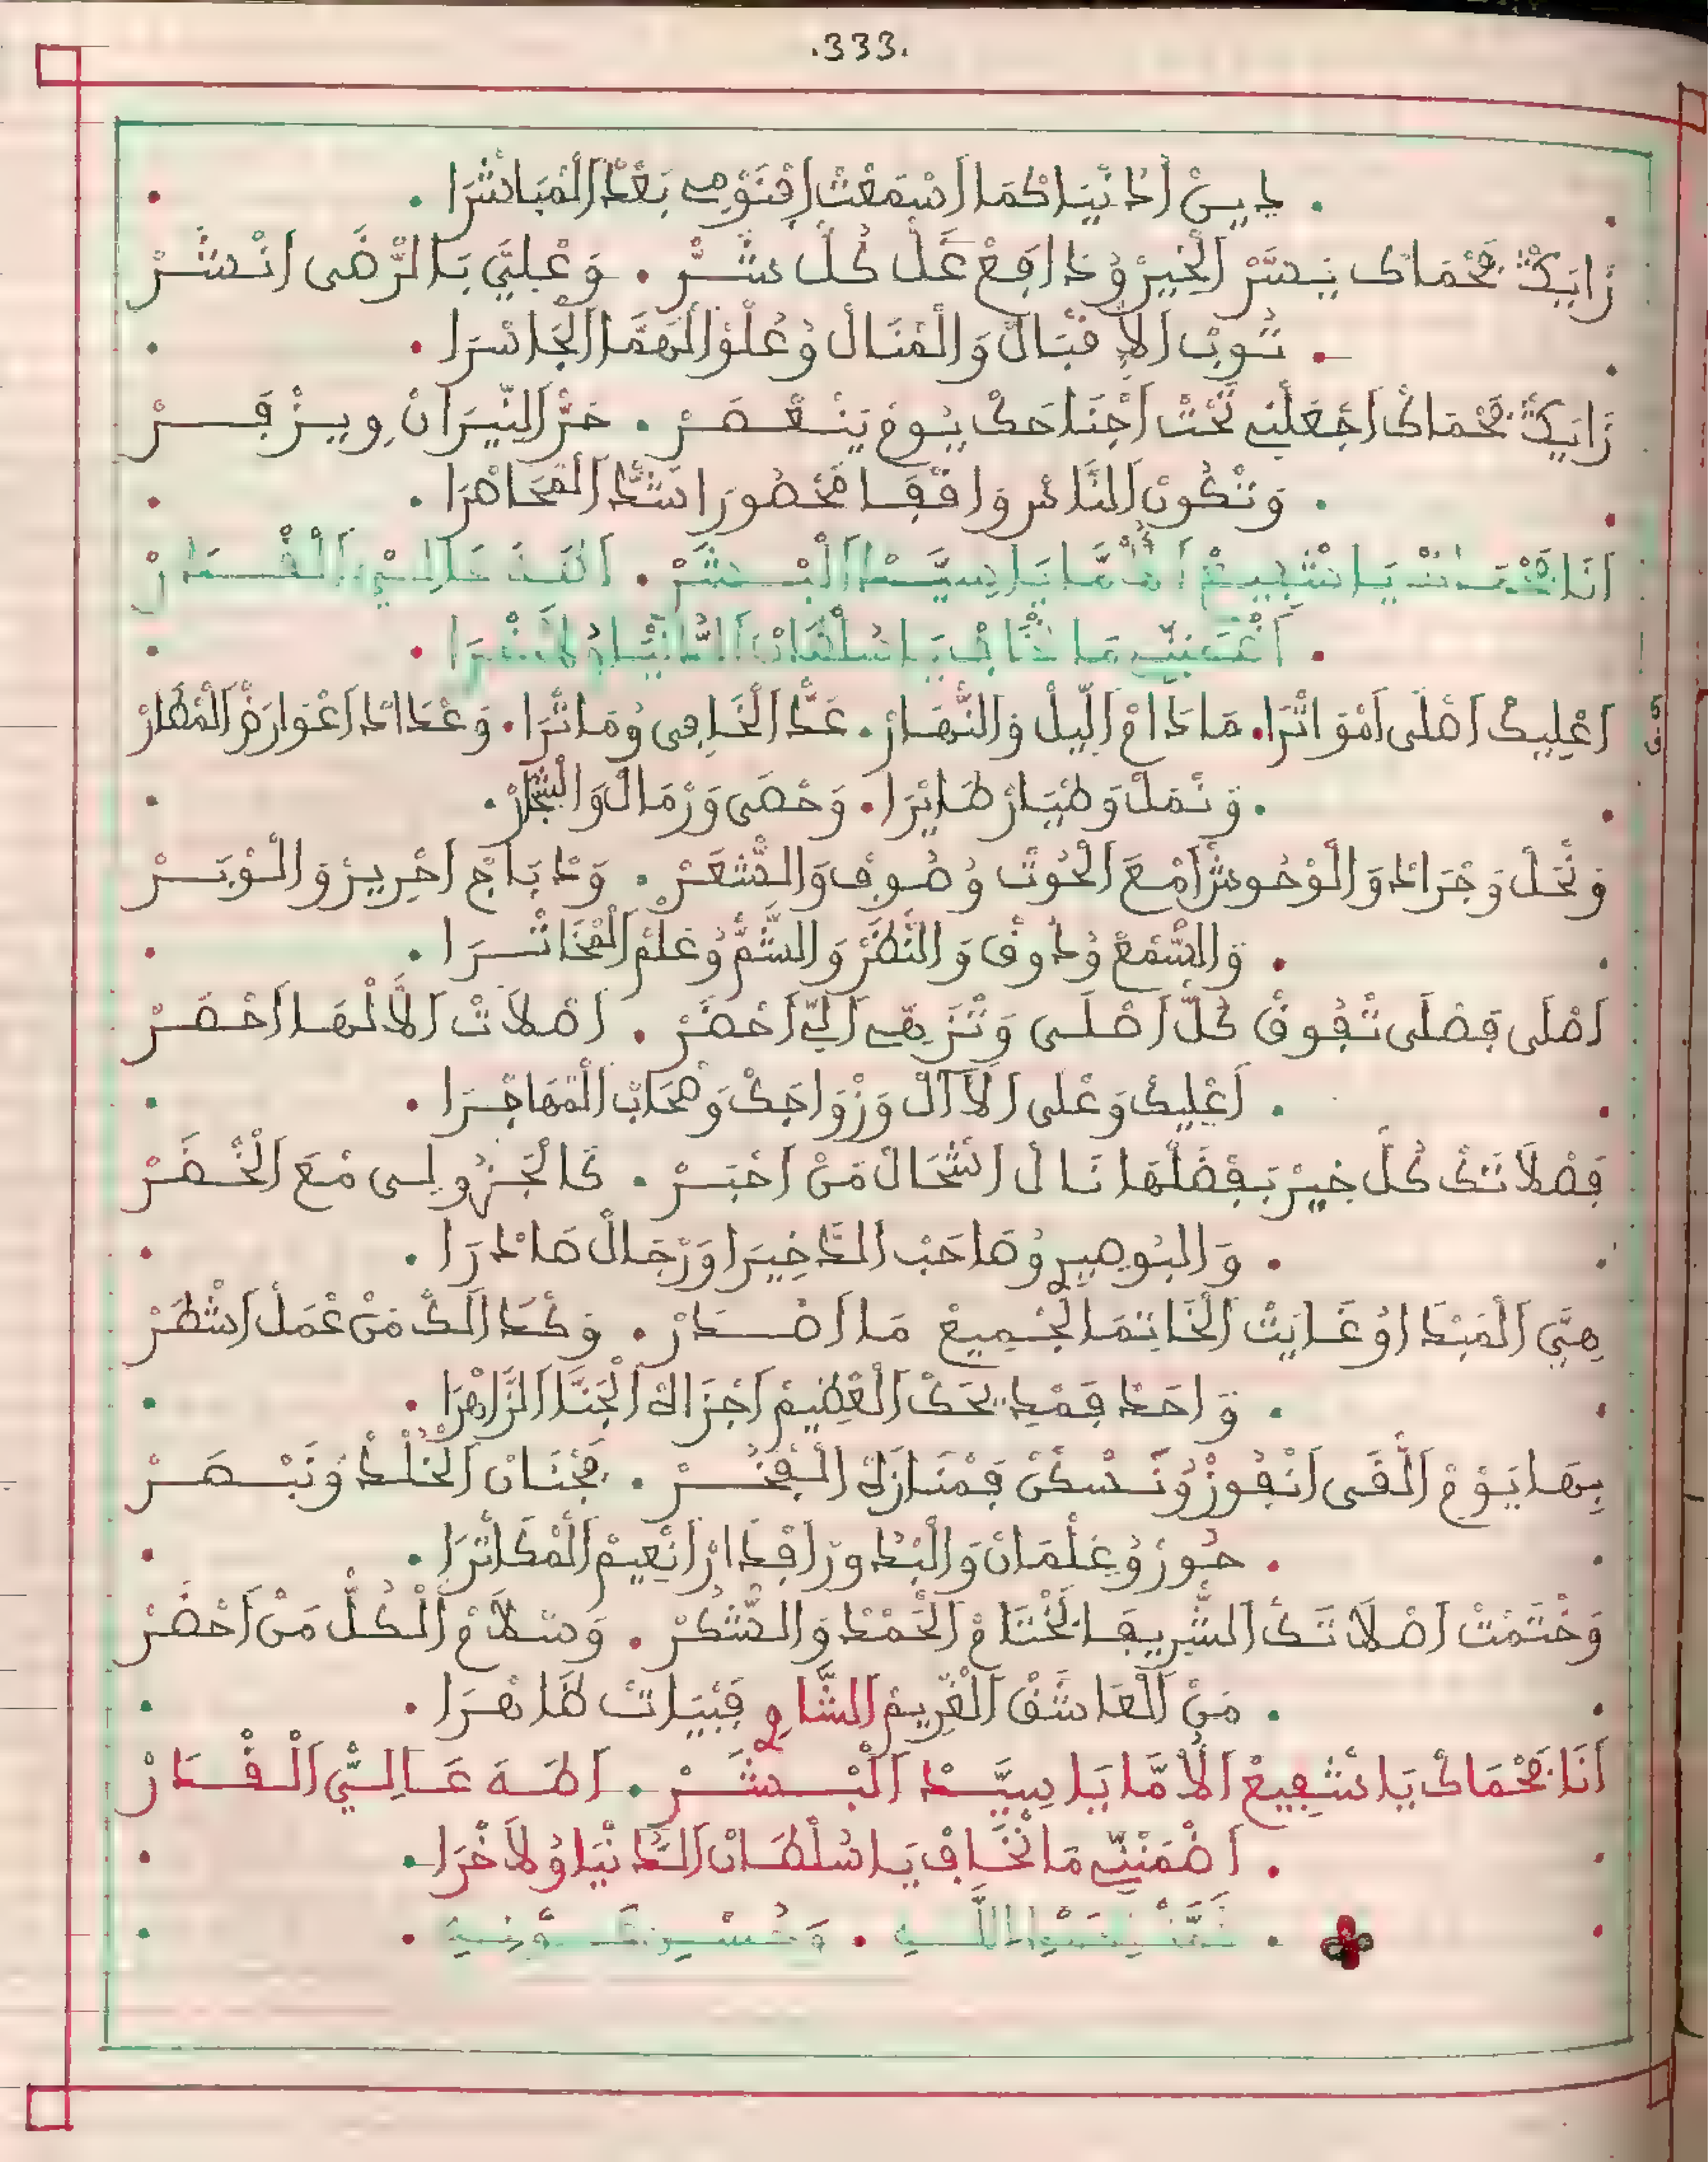 .333.
. يٰسِنْ اَدْنْيَا كْمَا اَسْمَعْتْ اِفْنَوْمِي بَعْدْ اَلْمْبَاشْرَا .
رَانِيكْ فْحْمَاكْ يَسَّرْ اَلْخِيرْ وُدَافِعْ عَلْ كُلّْ شَرّْ . وَعْلِيَّ بَالرّْضَى اَنْشَرْ
. تُوبْ اَلاِقْبَالْ وَالْمْنَالْ وُعُلُوْ اَلْهَمَّا اَلْجَاسْرَا .
رَانِيكْ فْحْمَاكْ اَجْعَلْنِي تَحْتْ اَجْنَاحَكْ يُومْ يَنْعْصَرْ . حَرّْ اَلنِّيرَانْ وِيزْفِرْ
. وَتْكُونْ اَلنَّاسْ وَاقْفَا فْحْضُورَ اشَدّْ اَلْمْحَاصْرَا .
اَنَا فْحْمَاكْ يَا شْفِيعْ اَلْأُمَّا يَا سِيَّدْ اَلْبْشَرْ . اَطَهَ عَالِيْ اَلْقْدَارْ
. اَضْمَنِّي مَا نْخَافْ يَا سُلْطَانْ اَلدَّنْيَا وُلَاخْرَا .
اَعْلِيكْ اَصْلَى اَمْوَاتْرَا . مَا دَامْ اَلِّيلْ وَالنّْهَارْ . عَدّْ اَلْخَافِى وُمَا تْرَا . وَعْدَادْ اَعْوَارَضْ اَلْمْطَارْ
. وَنْمَلْ وَطْيَارْ طَايْرَا . وَحْصَى وَرْمَالْ وَالْشْجَارْ .
وَنْحَلْ وَجْرَادْ وَالْوْحُوشْ اَمْعَ اَلْحُوتْ وُصُوفْ وَالشّْعَرْ . وَدْبَاجْ اَحْرِيرْ وَالْوْبَرْ
. وَالسّْمَعْ وُدْوقْ وَالنّْظَرْ وَالشَّمّْ وُعَلْمْ اَلْمْخَاتْرَا .
اَصْلَى فِضْلَى تْفُوقْ كُلّْ اَصْلَى وَتْزَهِّي اَلِّي اَحْضَرْ . اَصْلَاتْ اَلَّا لْهَا اَحْصَرْ
. اَعْلِيكْ وَعْلَى اَلْآلْ وَزْوَاجَكْ وَصْحَابْ اَلْمْهَاجْرَا .
فَصْلَاتَكْ كُلّْ خِيرْ بَفْضَلْهَا نَالْ اَشْحَالْ مَنْ اَحْبَرْ . كَالْجَزُولِى مْعَ اَلْخَضَرْ
. وَالْبُوصِيرِ وُصَاحَبْ اَلدّْخِيرَا وَرْجَالْ صَادْرَا .
هِيَّ اَلْمَبْدَا اُوْغَايَتْ اَلْخَاتِمَا لْجْمِيعْ مَا اَصْدَارْ . وَكْدَالَكْ مَنْ عْمَلْ اَشْطَرْ
. وَاحَدْ فَمْدِيحَكْ اَلْعْظِيمْ اَجْزَاهْ اَلْجَنَّا اَلزَّاهْرَا .
بِهَا يَوْمْ اَللّْقَى اَنْفُوزْ وُنَسْكَنْ فَمْنَازَلْ اَلْفْخَرْ . فْجْنَانْ اَلْخُلْدْ وُنَبْهَرْ
. حُورْ وُغِلْمَانْ وَالْبْدُورْ اَفْدَارْ اَنْعِيمْ اَلْمْكَاتْرَا .
وَخْتَمْتْ اَصْلَاتَكْ اَلشّْرِيفَا بَخْتَامْ اَلْحَمْدْ وَالشّْكُرْ . وَسْلَامْ اَلْكُلّْ مَنْ اَحْضَرْ
. مَنْ اَلْعَاشَقْ اَلْغْرِيمْ اَلشَّاوِي فَبْيَاتْ ظَاهْرَا .
اَنَا فْحْمَاكْ يَا شْفِيعْ اَلْأُمَّا يَا سِيَّدْ اَلْبْشَرْ . اَطَهَ عَالِيْ اَلْقْدَارْ
. اَضْمَنِّي مَا نْخَافْ يَا سُلْطَانْ اَلدَّنْيَا وُلَاخْرَا .